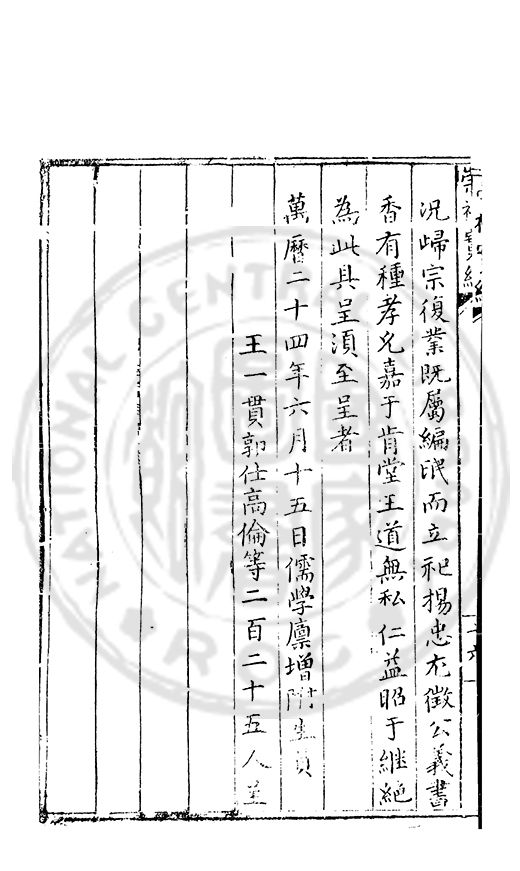 況歸宗復業既屬編氓而立祀揚忠尤徵公義書
香有種孝允嘉于肯堂王道無私仁益昭于繼絕
為此具呈須至呈者
萬曆二十四年六月十五日儒學廩增附生員
王一貫郭仕高倫等二百二十五人呈
NATIONAL CENTRAL LIBRARY